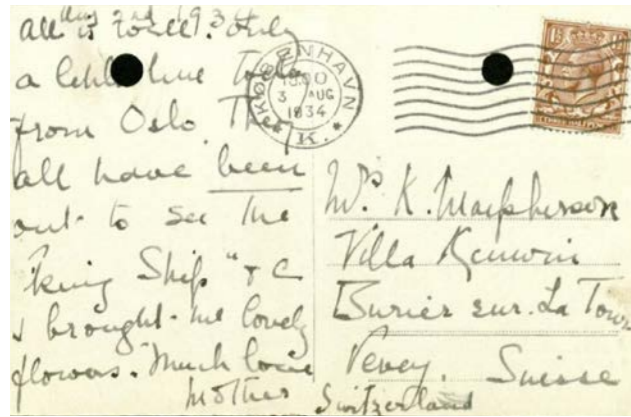 Aug 2nd 1934
all is well. Only
a little line
from Oslo. They
all have been
out to see the
"king Ship" & C
& brought me lovely
flowers. Much love
Mother
KØBENHAVN
3 AUG
1934
K.
Mrs K. Macpherson
Villa Kenwin
Burier sur. La Tour
Vevey. Suisse
Switzerland